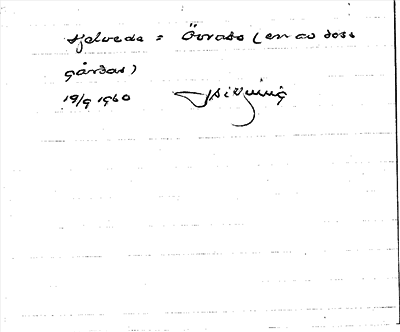 Sjelvede = Övrabo (en av dess
gårdar)
19/9 1960